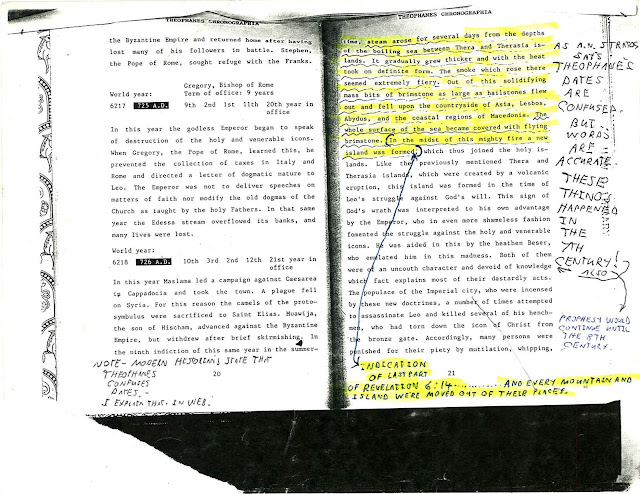 THEOPHANES CHRONOGRAPHIA
the Byzantine Empire and returned home after having
lost many of his followers in battle. Stephen,
the Pope of Rome, sought refuge with the Franks.
Gregory, Bishop of Rome
World year:
Term of office: 9 years
6217 725 A.D. 9th 2nd 1st 11th 20th year in
office
In this year the godless Emperor began to speak
of destruction of the holy and venerable icons.
When Gregory, the Pope of Rome, learned this, he
prevented the collection of taxes in Italy and
Rome and directed a letter of dogmatic nature to
Leo. The Emperor was not to deliver speeches on
matters of faith nor modify the old dogmas of the
Church as taught by the holy Fathers. In that same
year the Edessa stream overflowed its banks, and
many lives were lost.
World year:
6218 726 A.D. 10th 3rd 2nd 12th 21st year in
office
In this year Maslama led a campaign against Caesarea
in Cappadocia and took the town. A plague fell
on Syria. For this reason the camels of the proto-
symbulus were sacrificed to Saint Elias. Muawija,
the son of Hischam, advanced against the Byzantine
Empire, but withdrew after brief skirmishing. In
the ninth indiction of this same year in the summer-
20
NOTE - MODERN HISTORIANS STATE THAT
THEOPHANES
CONFUSES
DATES. -
I EXPLAIN THAT IN WEB.
THEOPHANES CHRONOGRAPHIA
time, steam arose for several days from the depths
of the boiling sea between Thera and Therasia is-
lands. It gradually grew thicker and with the heat
took on definite form. The smoke which rose there
seemed extremely fiery. Out of this solidifying
mass bits of brimstone as large as hailstones flew
out and fell upon the countryside of Asia, Lesbos,
Abydus, and the coastal regions of Macedonia. The
whole surface of the sea became covered with flying
brimstone. In the midst of this mighty fire a new
island was formed, which thus joined the other is-
lands. Like the previously mentioned Thera and
Therasia islands, which were created by a volcanic
eruption, this island was formed in the time of
Leo's struggle against God's will. This sign of
God's wrath was interpreted to his own advantage
by the Emperor, who in even more shameless fashion
fomented the struggle against the holy and venerable
icons. He was aided in this by the heathen Beser,
who emulated him in this madness. Both of them
were of an uncouth character and devoid of knowledge
which fact explains most of their dastardly acts.
The populace of the Imperial city, who were incensed
by these new doctrines, a number of times attempted
to assassinate Leo and killed several of his hench-
men, who had torn down the icon of Christ from
the bronze gate. Accordingly, many persons were
punished for their piety by mutilation, whipping,
21
INDICATION
OF LAST PART
OF REVELATION 6:14 ........ AND EVERY MOUNTAIN AND
ISLAND WERE MOVED OUT OF THEIR PLACES.
AS A.N. STRATOS,
SAYS
THEOPHANES
DATES
ARE
CONFUSED.
BUT
WORDS
ARE
ACCURATE.
THESE
THINGS
HAPPENED
IN
THE
7TH
CENTURY!
PROPHESY WOULD
CONTINUE UNTIL
THE 8TH
CENTURY.